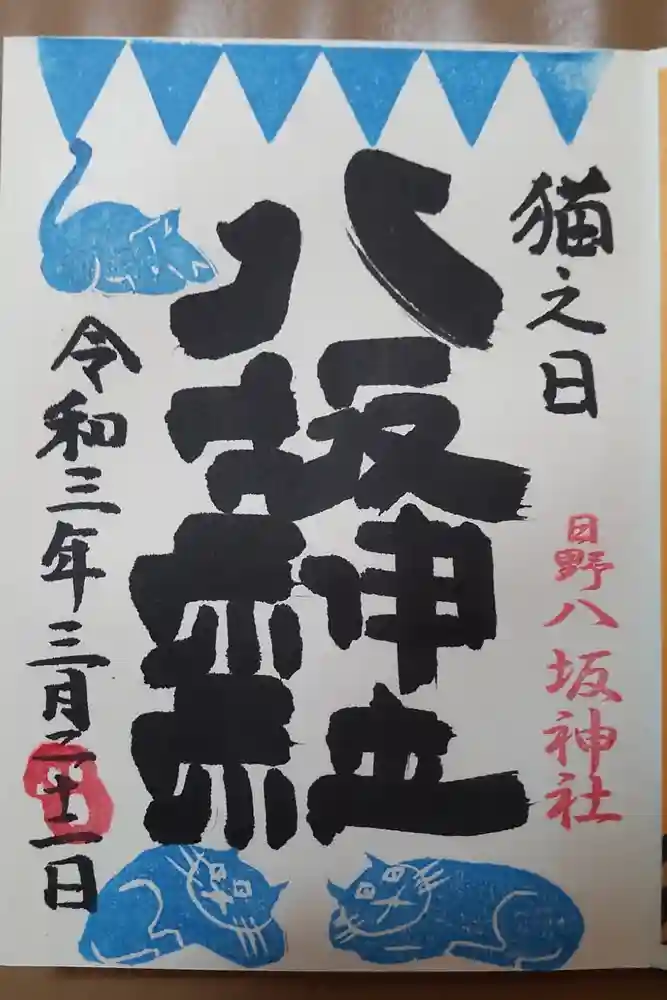 猫之日
日野八坂神社
八坂神社
令和三年三月二十一日